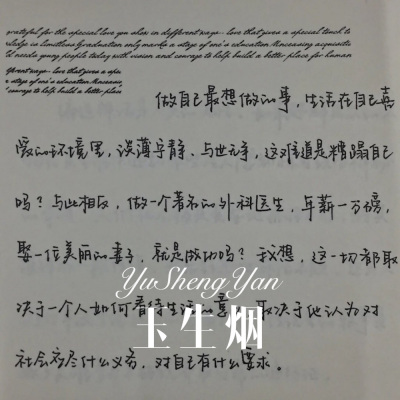 grateful for the special love you show in different ways - love that gives a special touch to
limitless Graduation only marks a stage of one's education Unceasing acquisitio
needs young people today with vision and courage to help build a better place for human
ways - love that gives a spe
a stage of one's education
courage to help build a better place
做自己最想做的事，生活在自己喜
爱的环境里，淡薄宁静、与世无争，这难道是糟蹋自己
吗？与此相反，做一个著名的外科医生，年薪一万磅，
娶一位美丽的妻子，就是成功吗？我想，这一切都取
决于一个人如何看待生活的意义，取决于他认为对
社会应尽什么义务，对自己有什么要求。
YuShengYan
玉生烟